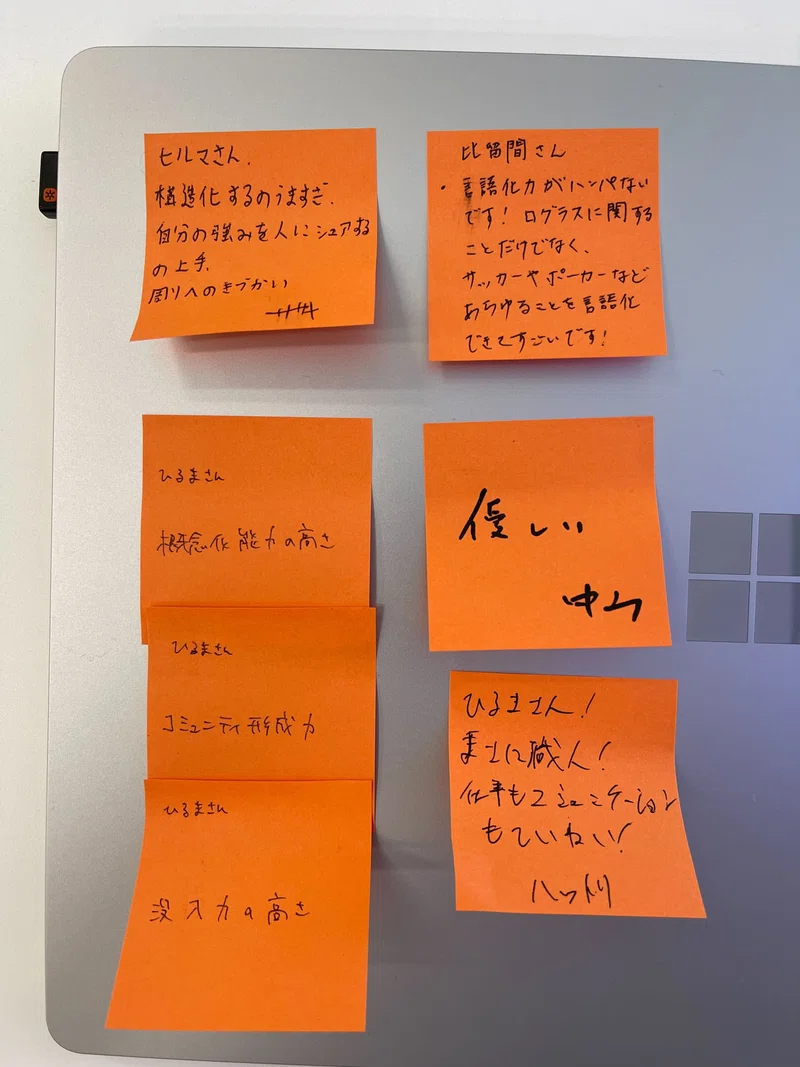 ヒルマさん.
構造化するのうますぎ.
自分の強みを人にシェアする
の上手.
周りへのきづかい
比留間さん
・言語化力がハンパない
です! ログラスに関する
ことだけでなく、
サッカーやポーカーなど
あらゆることを言語化
できてすごいです!
ひるまさん
概念化能力の高さ
優しい
中山
ひるまさん
コミュニティ形成力
ひるまさん!
まさに職人!
仕事もコミュニケーション
もていねい!
ハットリ
ひるまさん
没入力の高さ